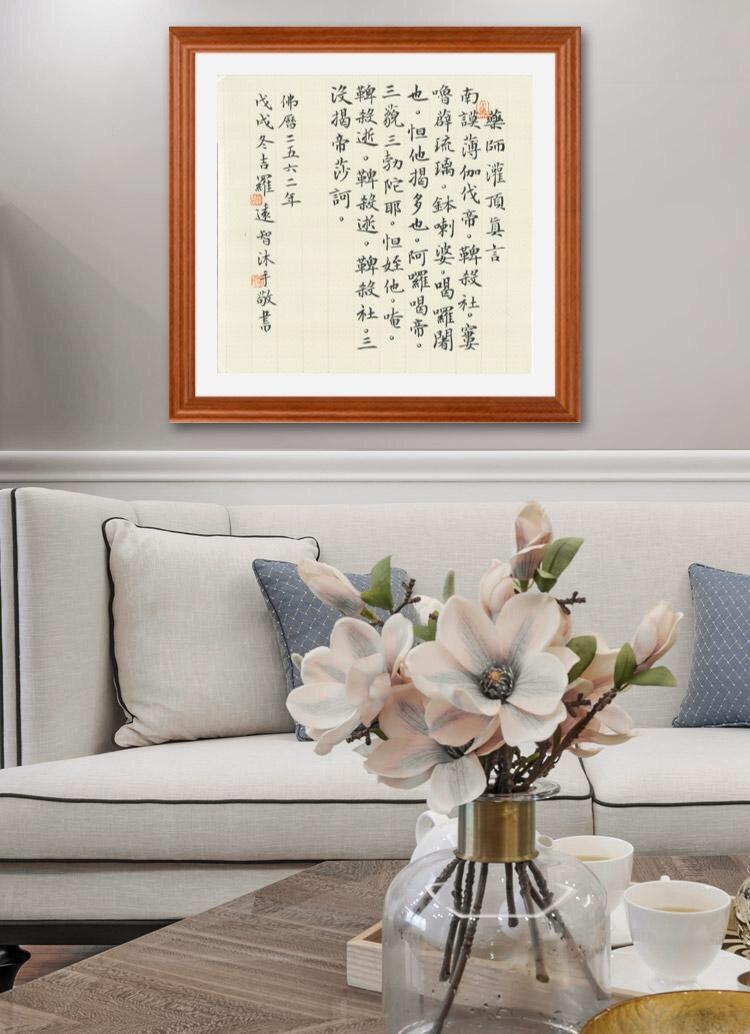 藥師灌頂眞言
南謨薄伽伐帝。鞞殺社。窶
嚕薜琉璃。鉢喇婆。喝囉闍
也。怛他揭多也。阿囉喝帝。
三藐三勃陀耶。怛姪他。唵。
鞞殺逝。鞞殺逝。鞞殺社。三
沒揭帝莎訶。
佛曆二五六二年
戊戌冬吉羅遠智沐手敬書